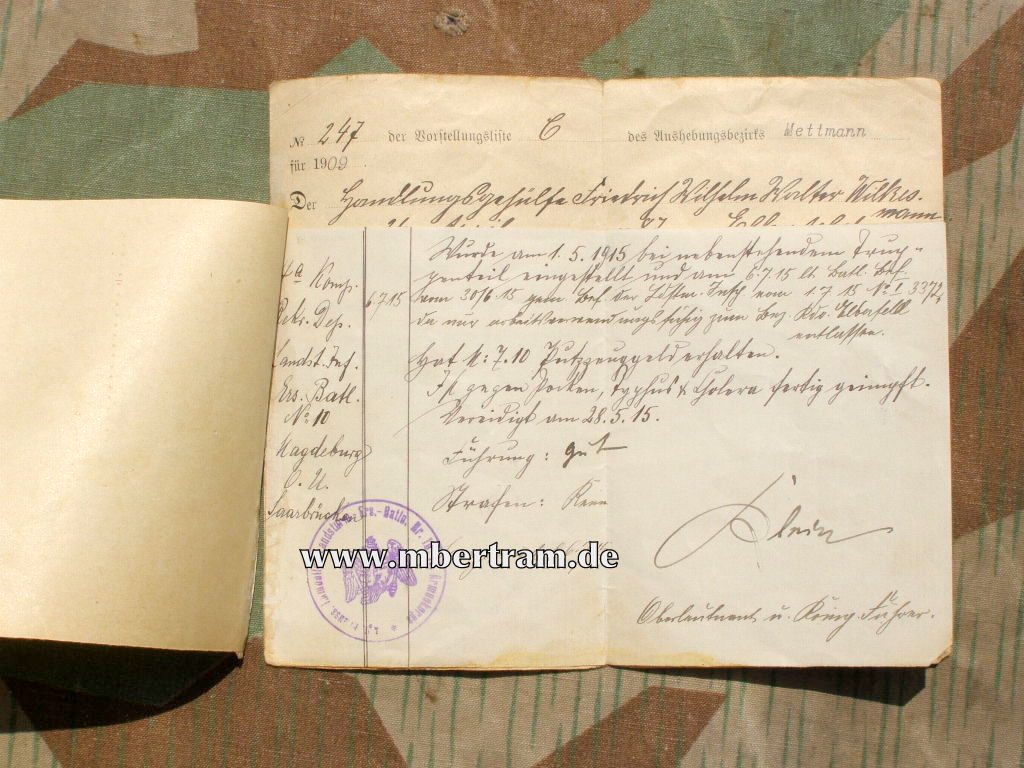 No 247 der Vorstellungsliste C des Aushebungsbezirks Mettmann
für 1909.
Der Handlungsgehülfe Friedrich Wilhelm Walter Wilkes-
mann
4a Komp.
Rekr. Dep.
Landst. Inf.
Ers. Batl.
No 10
Magdeburg
O. U.
Saarbrücken
6.7.15
Wurde am 1.5.1915 bei nebenstehendem Trup-
penteil eingestellt und am 6.7.15 lt. Batl. Bef.
vom 30/6.15 gem. Bef. der Ldstm. Insp. vom 1.7.15 No I 3372
da nur arbeitsverwendungsfähig zum Bez. Kdo. Elberfeld
entlassen.
Hat M: 7.10 Putzzeuggeld erhalten.
Ist gegen Pocken, Typhus & Cholera fertig geimpft.
Vereidigt am 28.5.15.
Führung: gut
Strafen: Keine
www.mbertram.de
Klein
Oberleutnant u. Komp. Führer.